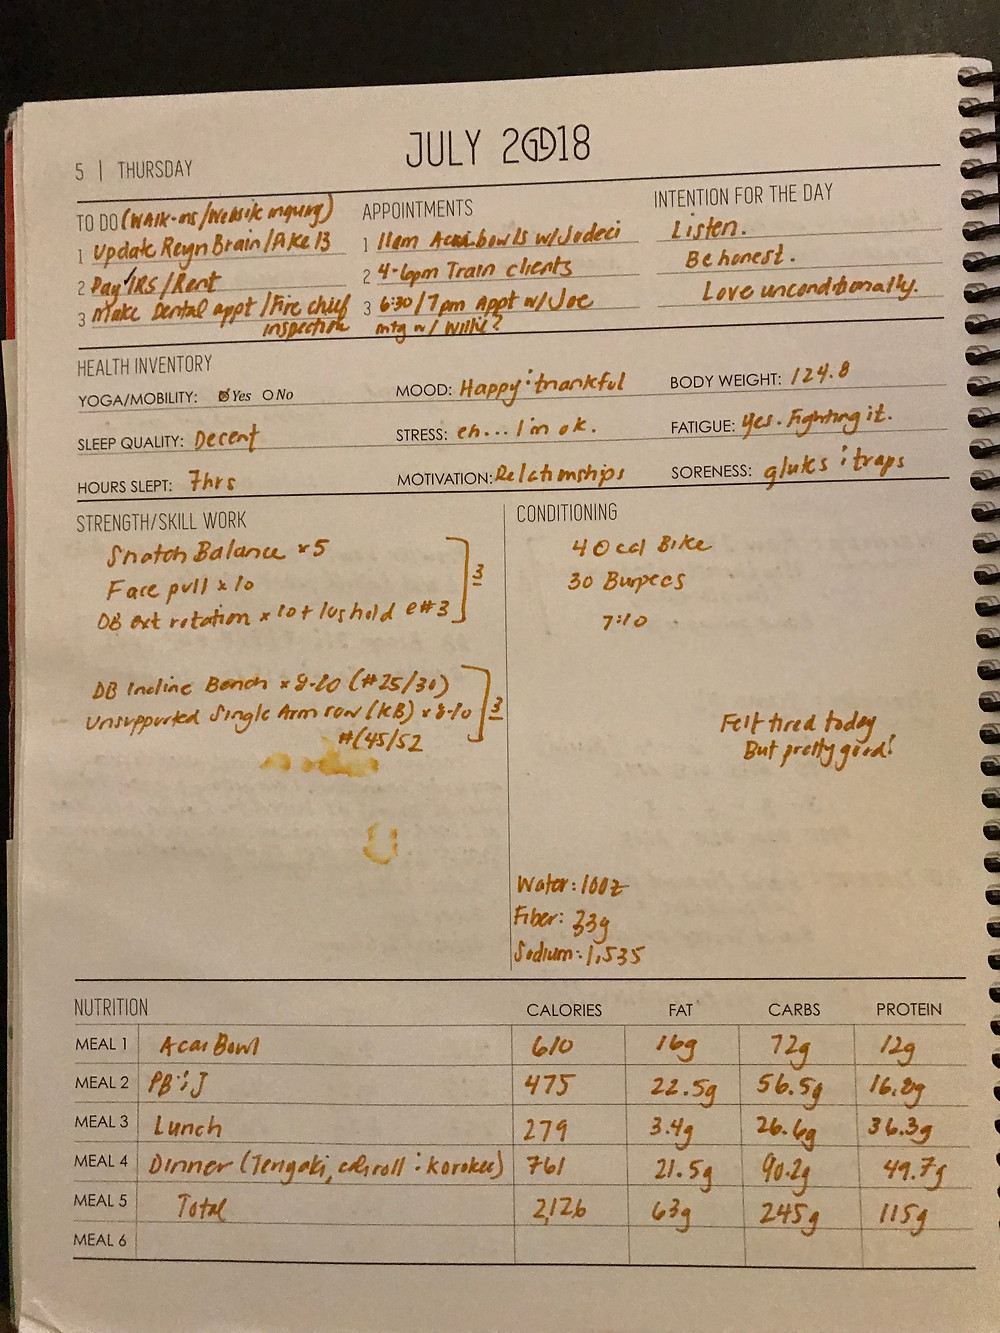 JULY 2018
5 | THURSDAY
TO DO (Walk-ins/Website inquiry)
1 Update Reyn Brain/Ake 13
2 Pay IRS/Rent
3 Make Dental appt/Fire chief
inspection
APPOINTMENTS
1 11am Acai bowls w/Jodeci
2 4-6pm Train clients
3 6:30/7pm Appt w/Joe
mtg w/ Willie?
INTENTION FOR THE DAY
Listen.
Be honest.
Love unconditionally.
HEALTH INVENTORY
YOGA/MOBILITY: Yes No
MOOD: Happy & thankful
BODY WEIGHT: 124.8
SLEEP QUALITY: Decent
STRESS: eh... I'm ok.
FATIGUE: Yes. Fighting it.
HOURS SLEPT: 7hrs
MOTIVATION: Relationships
SORENESS: glutes & traps
STRENGTH/SKILL WORK
Snatch Balance x5
Face pull x 10
DB ext rotation x 10 + 10s hold e #3
3
DB Incline Bench x 8-10 (#25/30)
Unsupported Single Arm row (KB) x 8-10
#(45/52
3
CONDITIONING
40 cal Bike
30 Burpees
7:10
Felt tired today
But pretty good!
Water: 100z
Fiber: 33g
Sodium: 1,535
NUTRITION CALORIES FAT CARBS PROTEIN
MEAL 1 Acai Bowl 610 16g 72g 12g
MEAL 2 PB & J 475 22.5g 56.5g 16.8g
MEAL 3 Lunch 279 3.4g 26.6g 36.3g
MEAL 4 Dinner (Teriyaki, roll & korokee) 761 21.5g 90.2g 49.7g
MEAL 5 Total 2,126 63g 245g 115g
MEAL 6